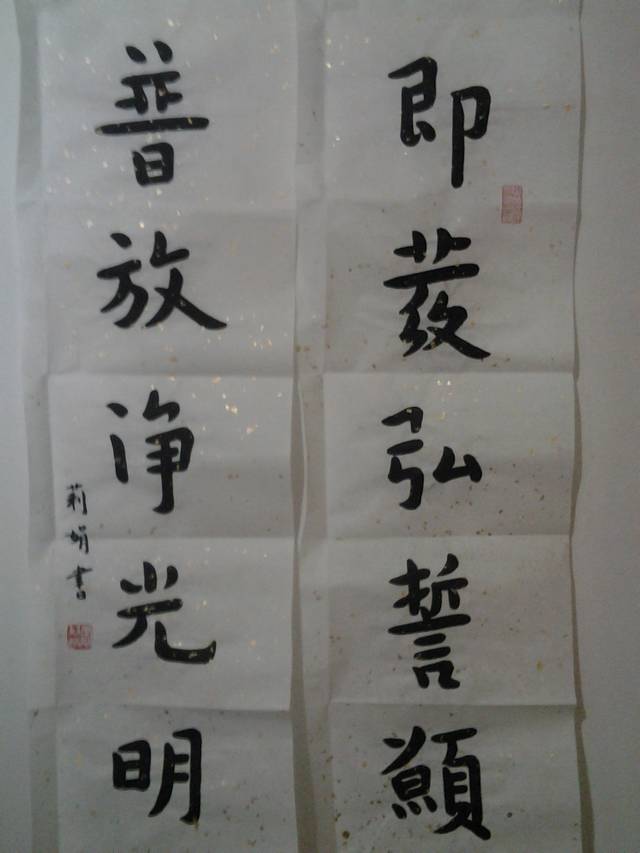 即發弘誓願
普放净光明
莉娟書